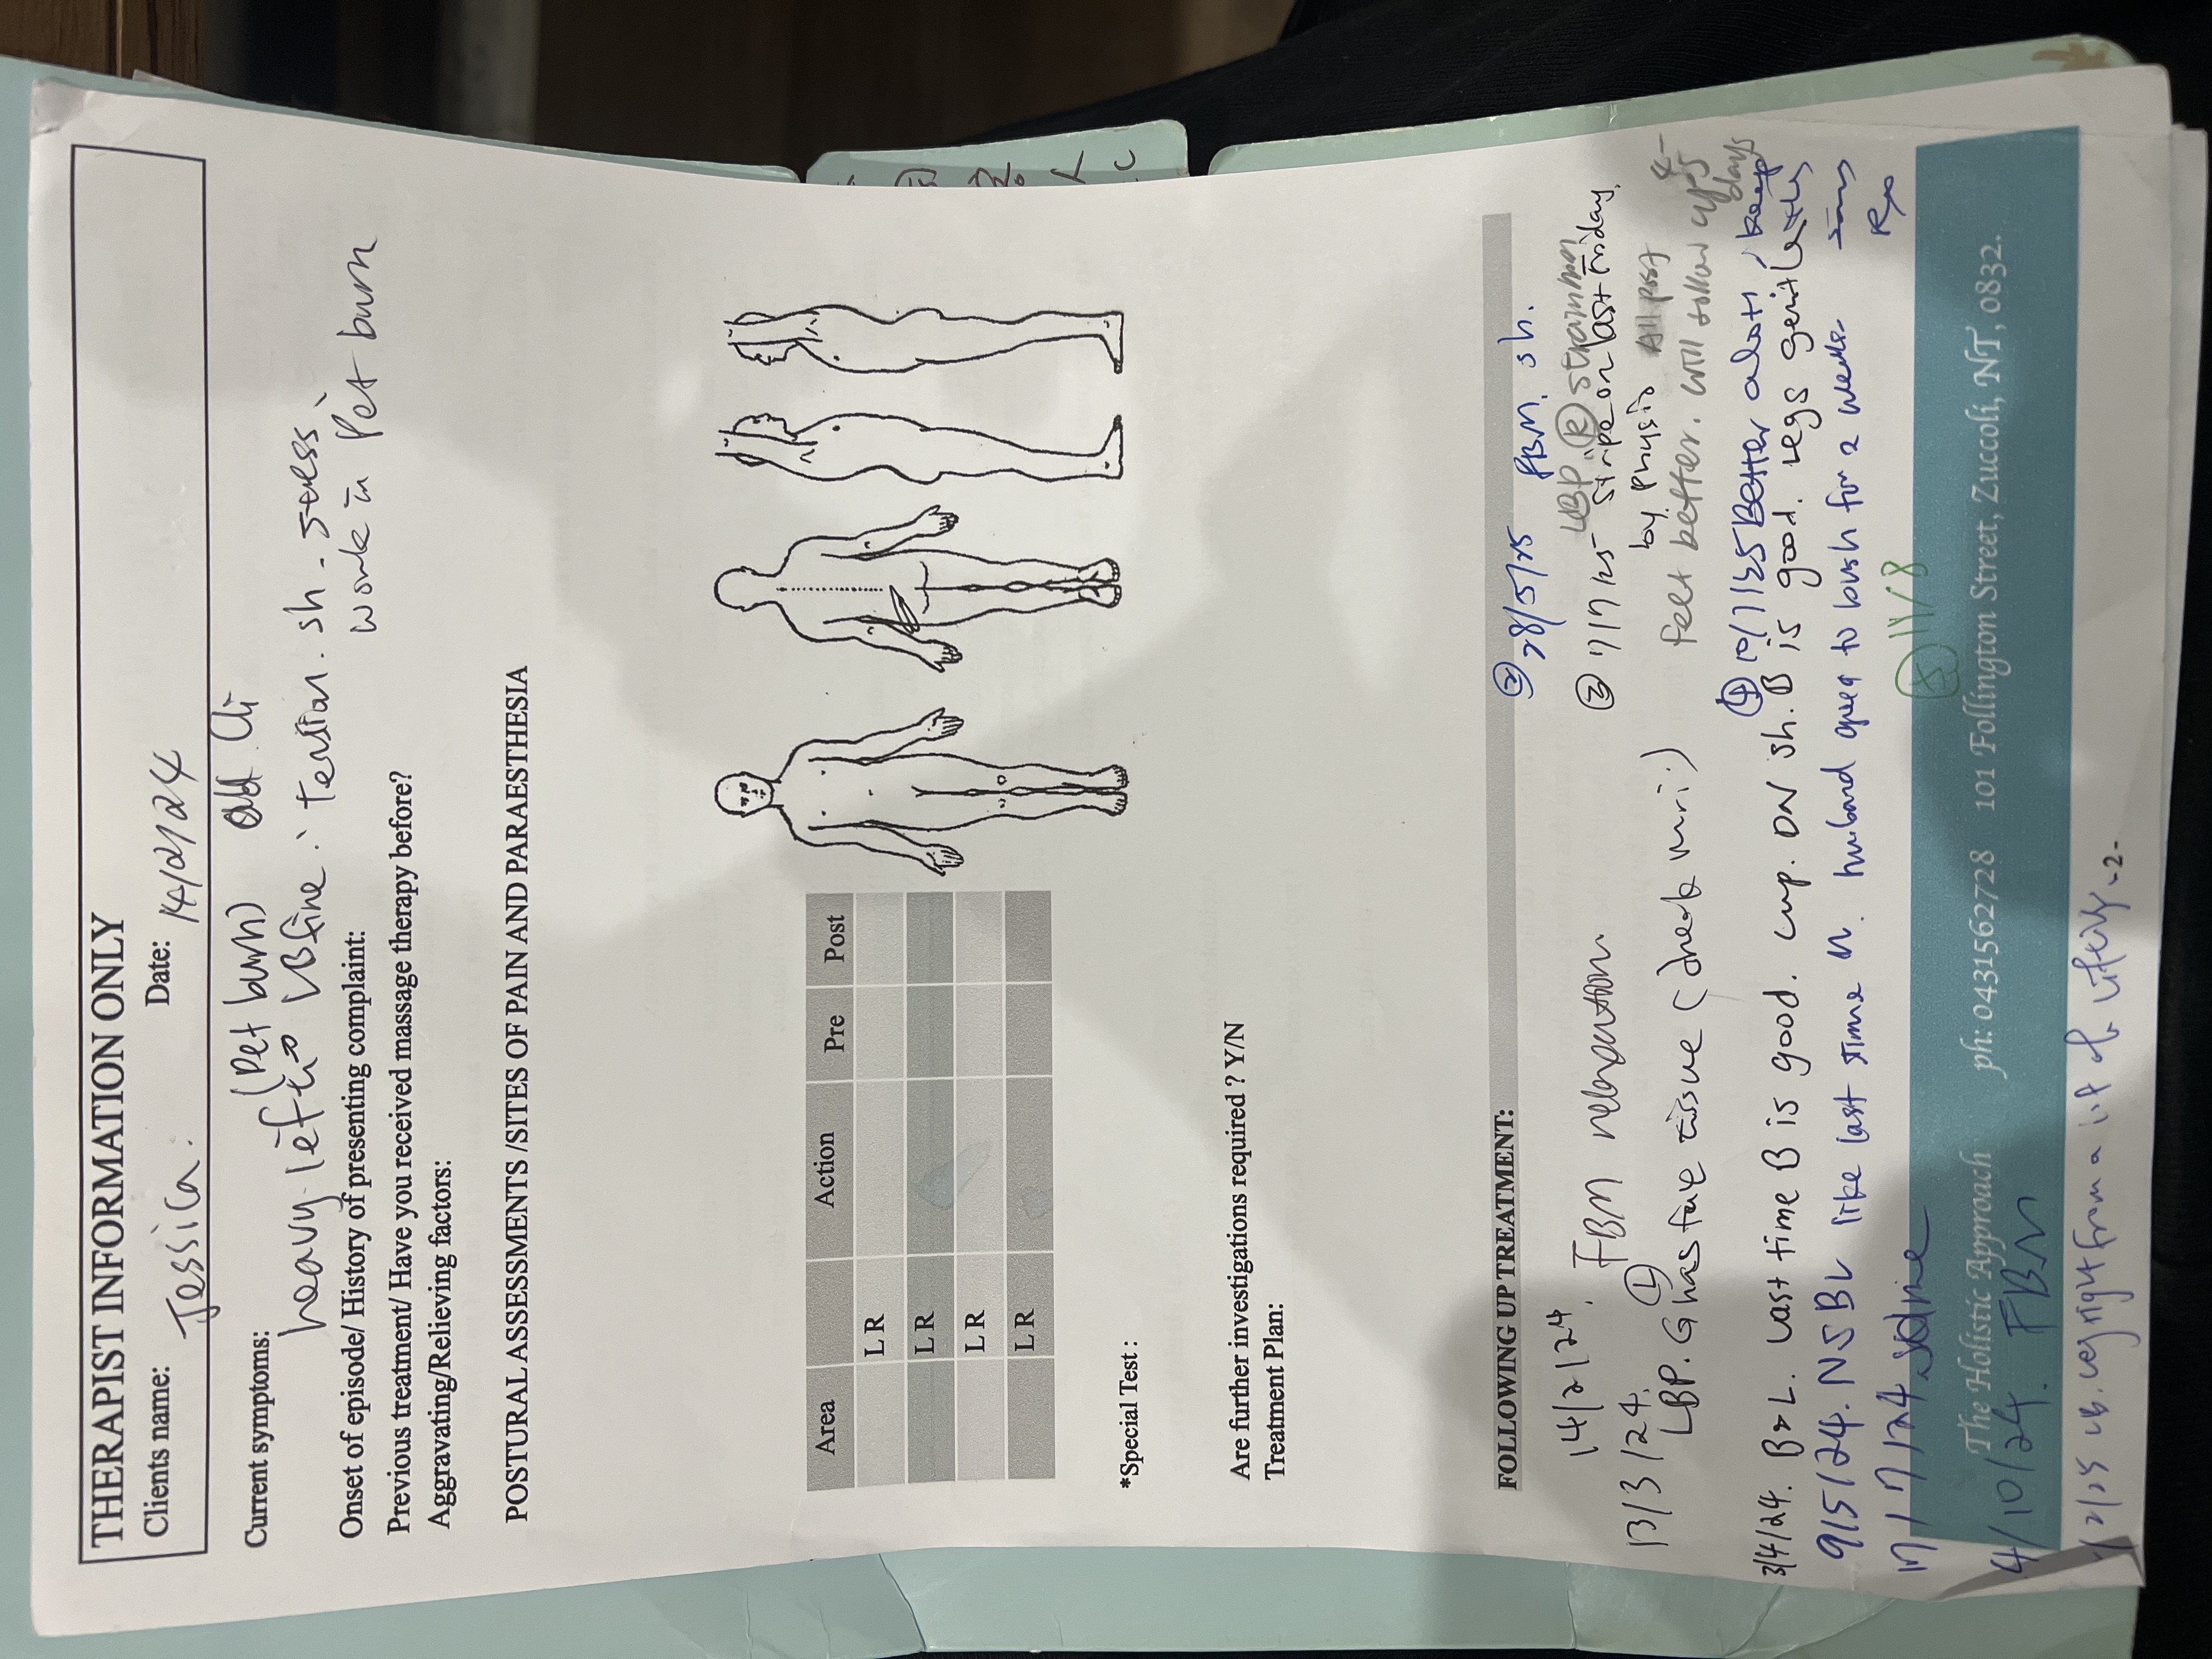 THERAPIST INFORMATION ONLY
Clients name: Jessica. Date: 14/2/24
(Pet burn) Cli
Current symptoms:
heavy left B fine. tension. sh. stress
work in Pet burn
Onset of episode/ History of presenting complaint:
Previous treatment/ Have you received massage therapy before?
Aggravating/Relieving factors:
POSTURAL ASSESSMENTS /SITES OF PAIN AND PARAESTHESIA
Area Action Pre Post
L R
L R
L R
L R
*Special Test :
Are further investigations required ? Y/N
Treatment Plan:
FOLLOWING UP TREATMENT:
14/2/24. FBM relaxation
13/3/24. LBP. G has tissue
3/4/24. B L. Last time B is good. cup. DN sh. B is good. legs
9/5/24. NSBL like last time husband to bush for a week
17/7/24. same
4/10/24. FBM
2/25 from a lift of
② 28/5/25 FBM. sh.
③ 7/7/25 LBP. Ⓡ
on last Friday.
by Physio All post
feel better. will follow up 4-5 days
④ 10/7/25 Better a lot, keep
same
Rx
⑤ 11/8
The Holistic Approach ph: 0431562728 101 Follington Street, Zuccoli, NT, 0832.
-2-